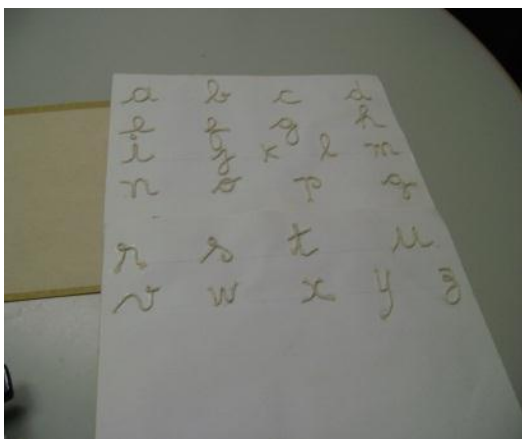 a b c d
e f g h
i j k l m
n o p q
r s t u
v w x y z